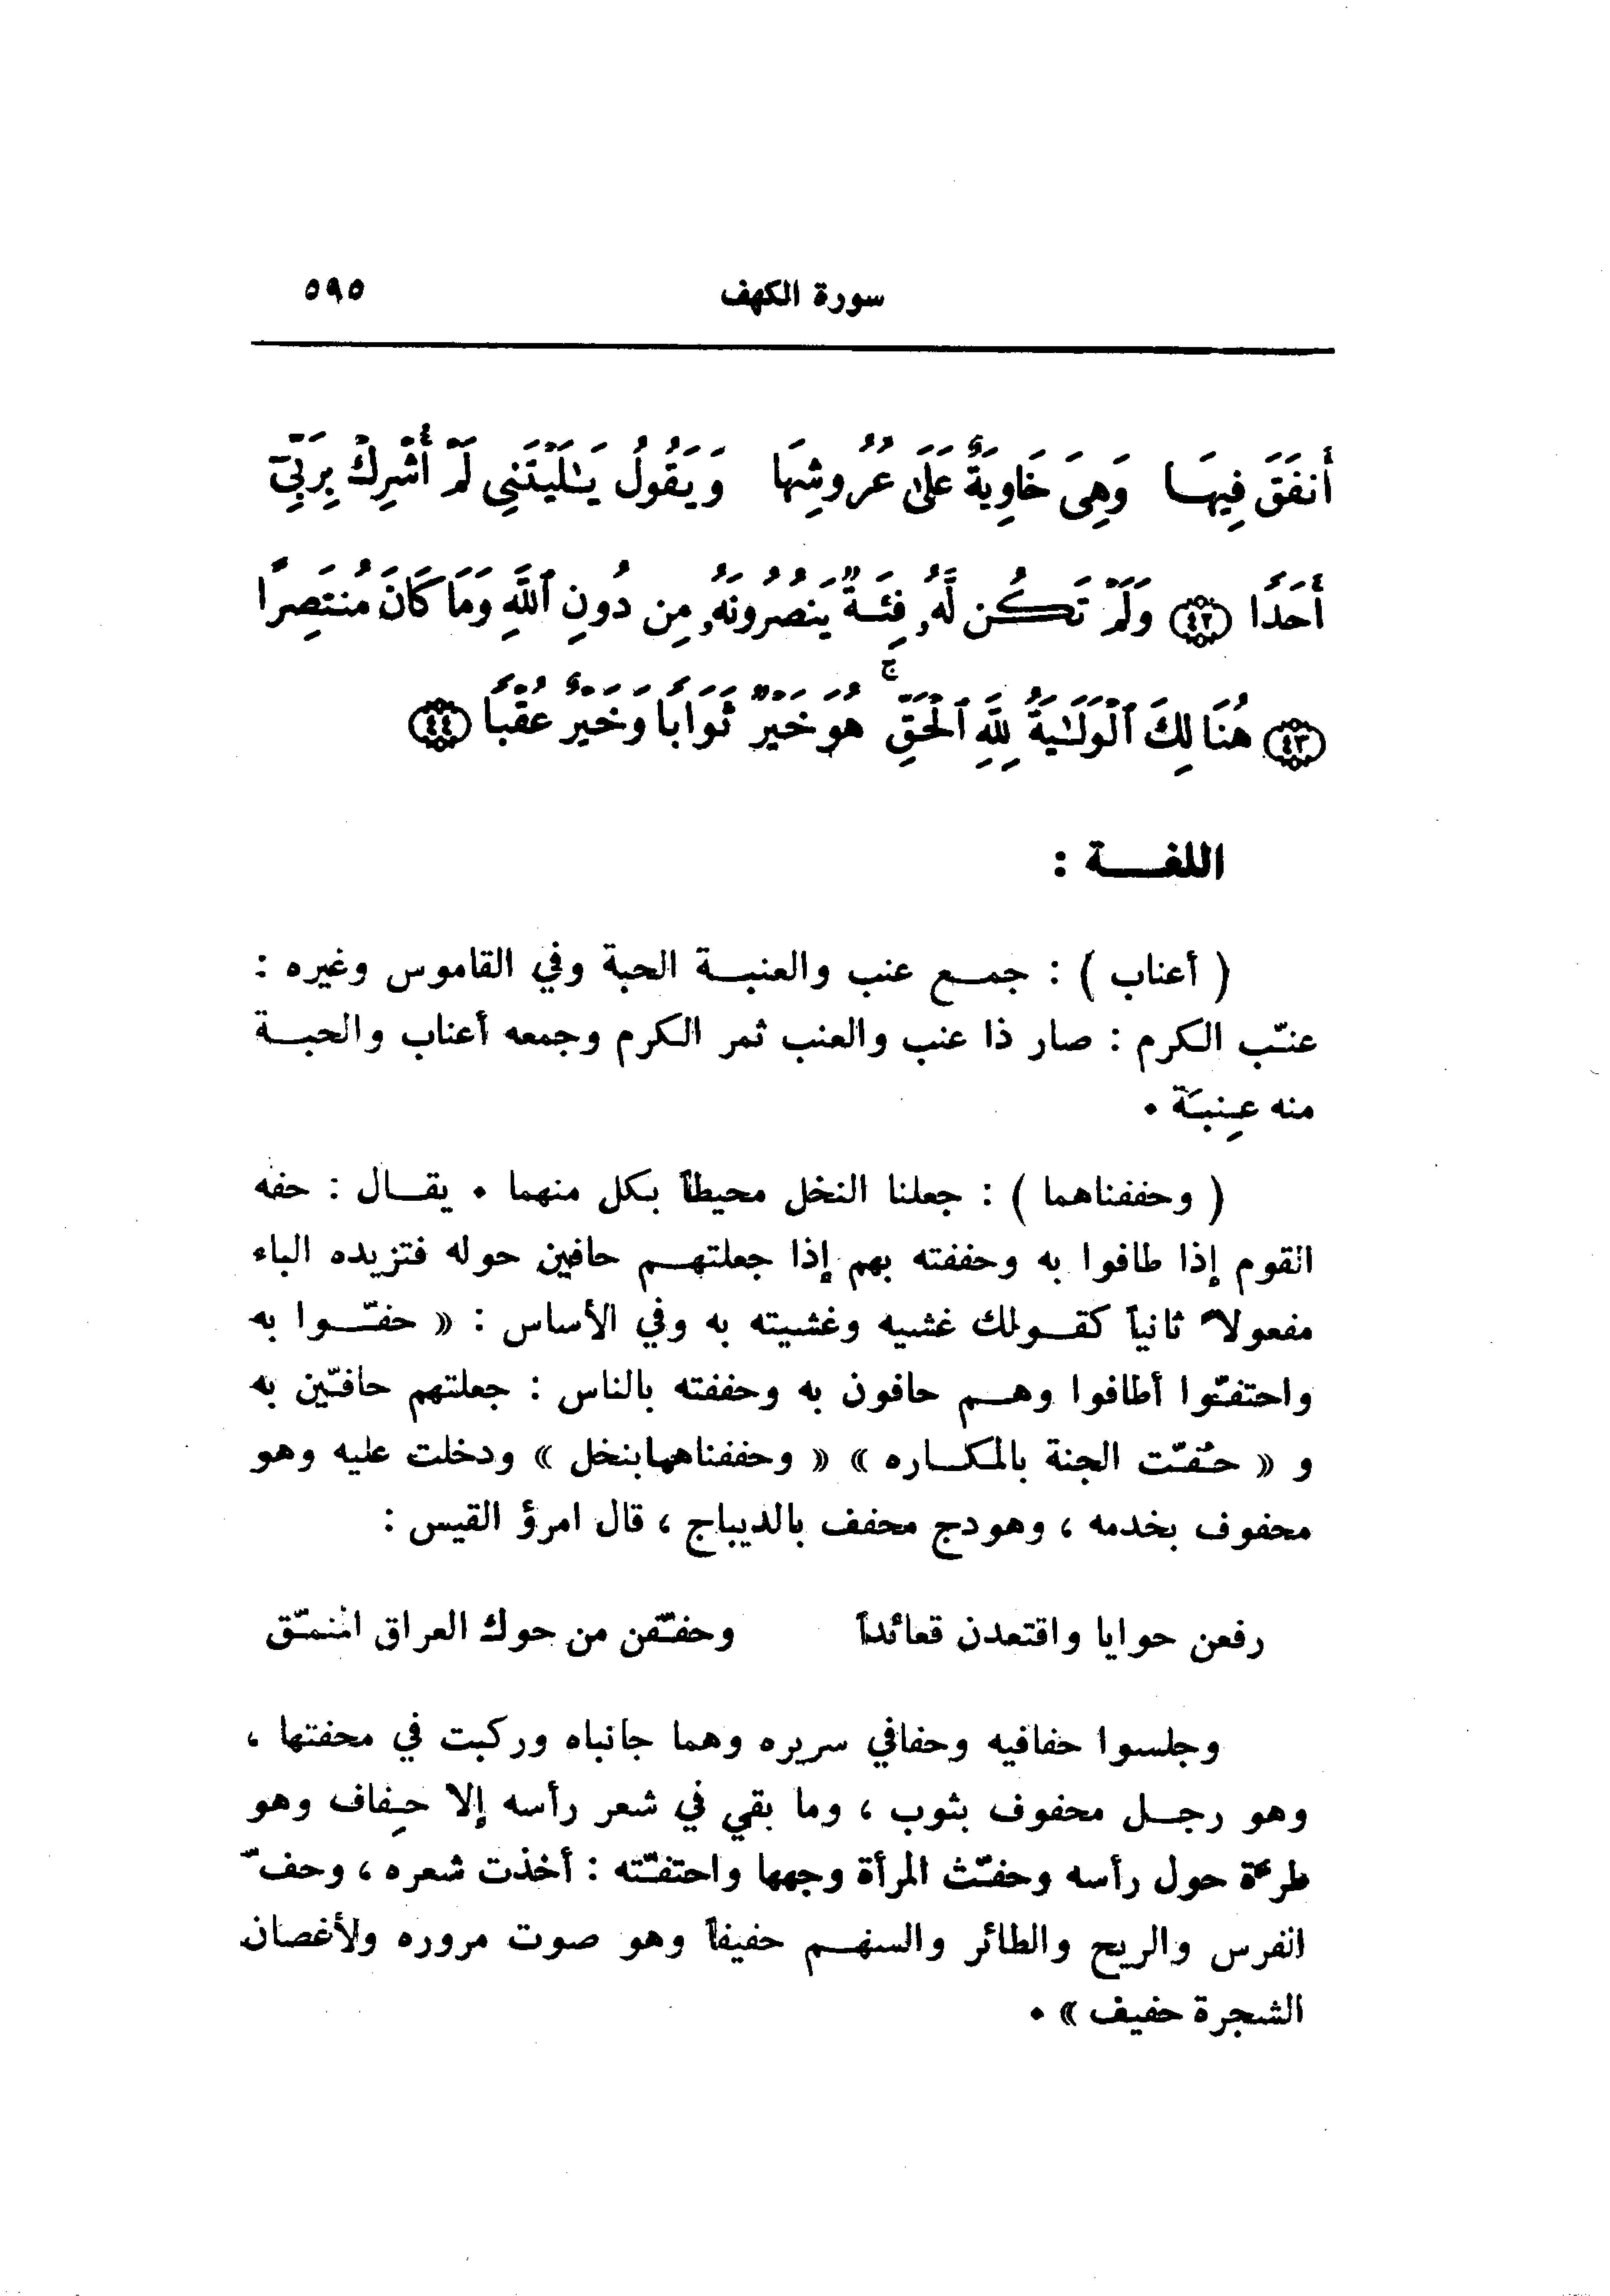 سورة الكهف ٥٩٥
أَنفَقَ فِيهَا وَهِيَ خَاوِيَةٌ عَلَىٰ عُرُوشِهَا وَيَقُولُ يَـٰلَيْتَنِى لَمْ أُشْرِكْ بِرَبِّىٓ
أَحَدًا ﴿٤٢﴾ وَلَمْ تَكُن لَّهُۥ فِئَةٌ يَنصُرُونَهُۥ مِن دُونِ ٱللَّهِ وَمَا كَانَ مُنتَصِرًا
﴿٤٣﴾ هُنَالِكَ ٱلْوَلَـٰيَةُ لِلَّهِ ٱلْحَقِّ ۚ هُوَ خَيْرٌ ثَوَابًا وَخَيْرٌ عُقْبًا ﴿٤٤﴾
اللغـــة :
( أعناب ) : جمـع عنب والعنبـة الحبة وفي القاموس وغيره :
عنّب الكرم : صار ذا عنب والعنب ثمر الكرم وجمعه أعناب والحبـة
منه عِنبَة .
( وحففناهما ) : جعلنا النخل محيطاً بكل منهما . يقـال : حفه
القوم إذا طافوا به وحففته بهم إذا جعلتهـم حافين حوله فتزيده الباء
مفعولاً ثانياً كقـولك غشيه وغشيته به وفي الأساس : « حفّـوا به
واحتفّوا أطافوا وهـم حافون به وحففته بالناس : جعلتهم حافّين به
و « حُفّت الجنة بالمكـاره » « وحففناهمابنخل » ودخلت عليه وهو
محفوف بخدمه ، وهودج محفف بالديباج ، قال امرؤ القيس :
رفعن حوايا واقتعدن قعائداً وحفّفن من حوك العراق المنمّق
وجلسوا حفافيه وحفافي سريره وهما جانباه وركبت في محفتها ،
وهو رجـل محفوف بثوب ، وما بقي في شعر رأسه إلا حِفاف وهو
طرّة حول رأسه وحفّت المرأة وجهها واحتفّته : أخذت شعره ، وحفّ
الفرس والريح والطائر والسهـم حفيفاً وهو صوت مروره ولأغصان
الشجرة حفيف » .